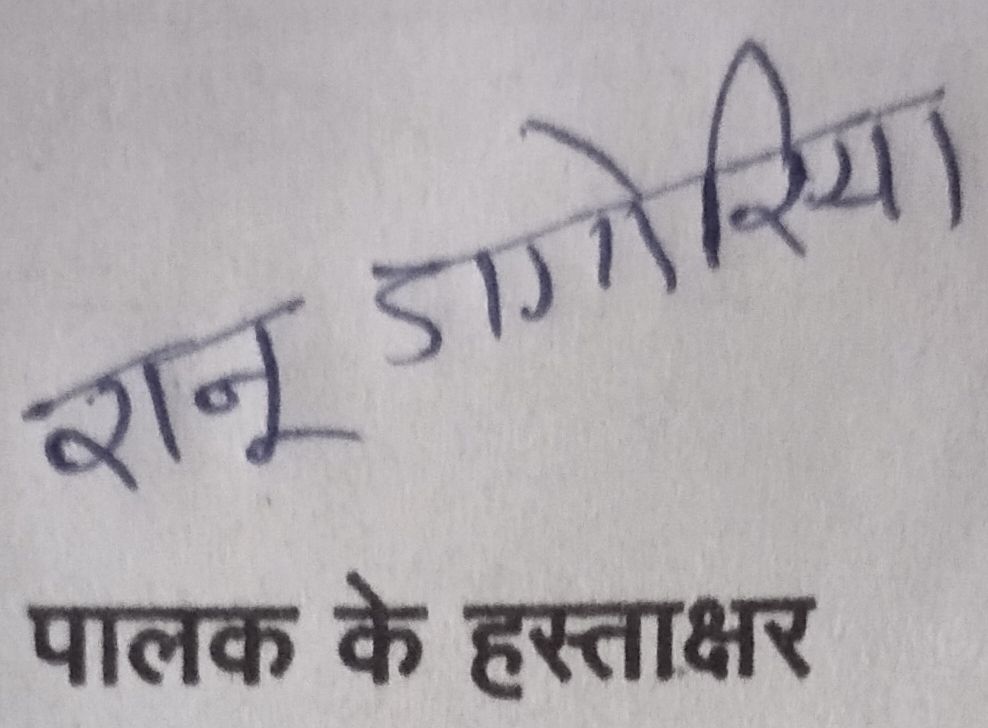 रानू डागेरिया
पालक के हस्ताक्षर